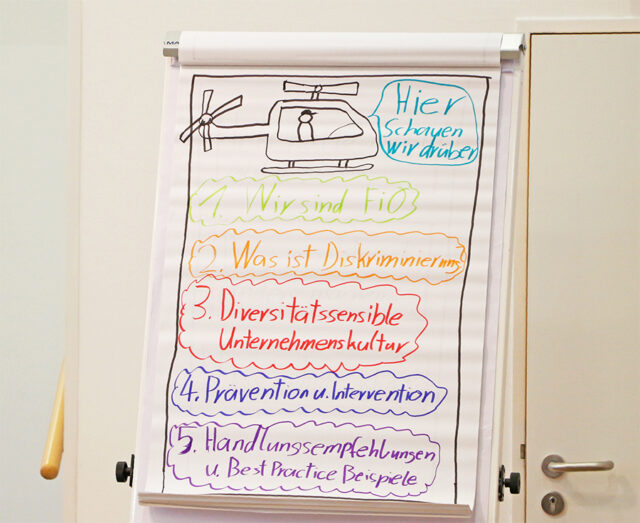 Hier
schauen
wir drüber
1. Wir sind FiO
2. Was ist Diskriminierung
3. Diversitätssensible
Unternehmenskultur
4. Prävention u. Intervention
5. Handlungsempfehlungen
u. Best Practice Beispiele